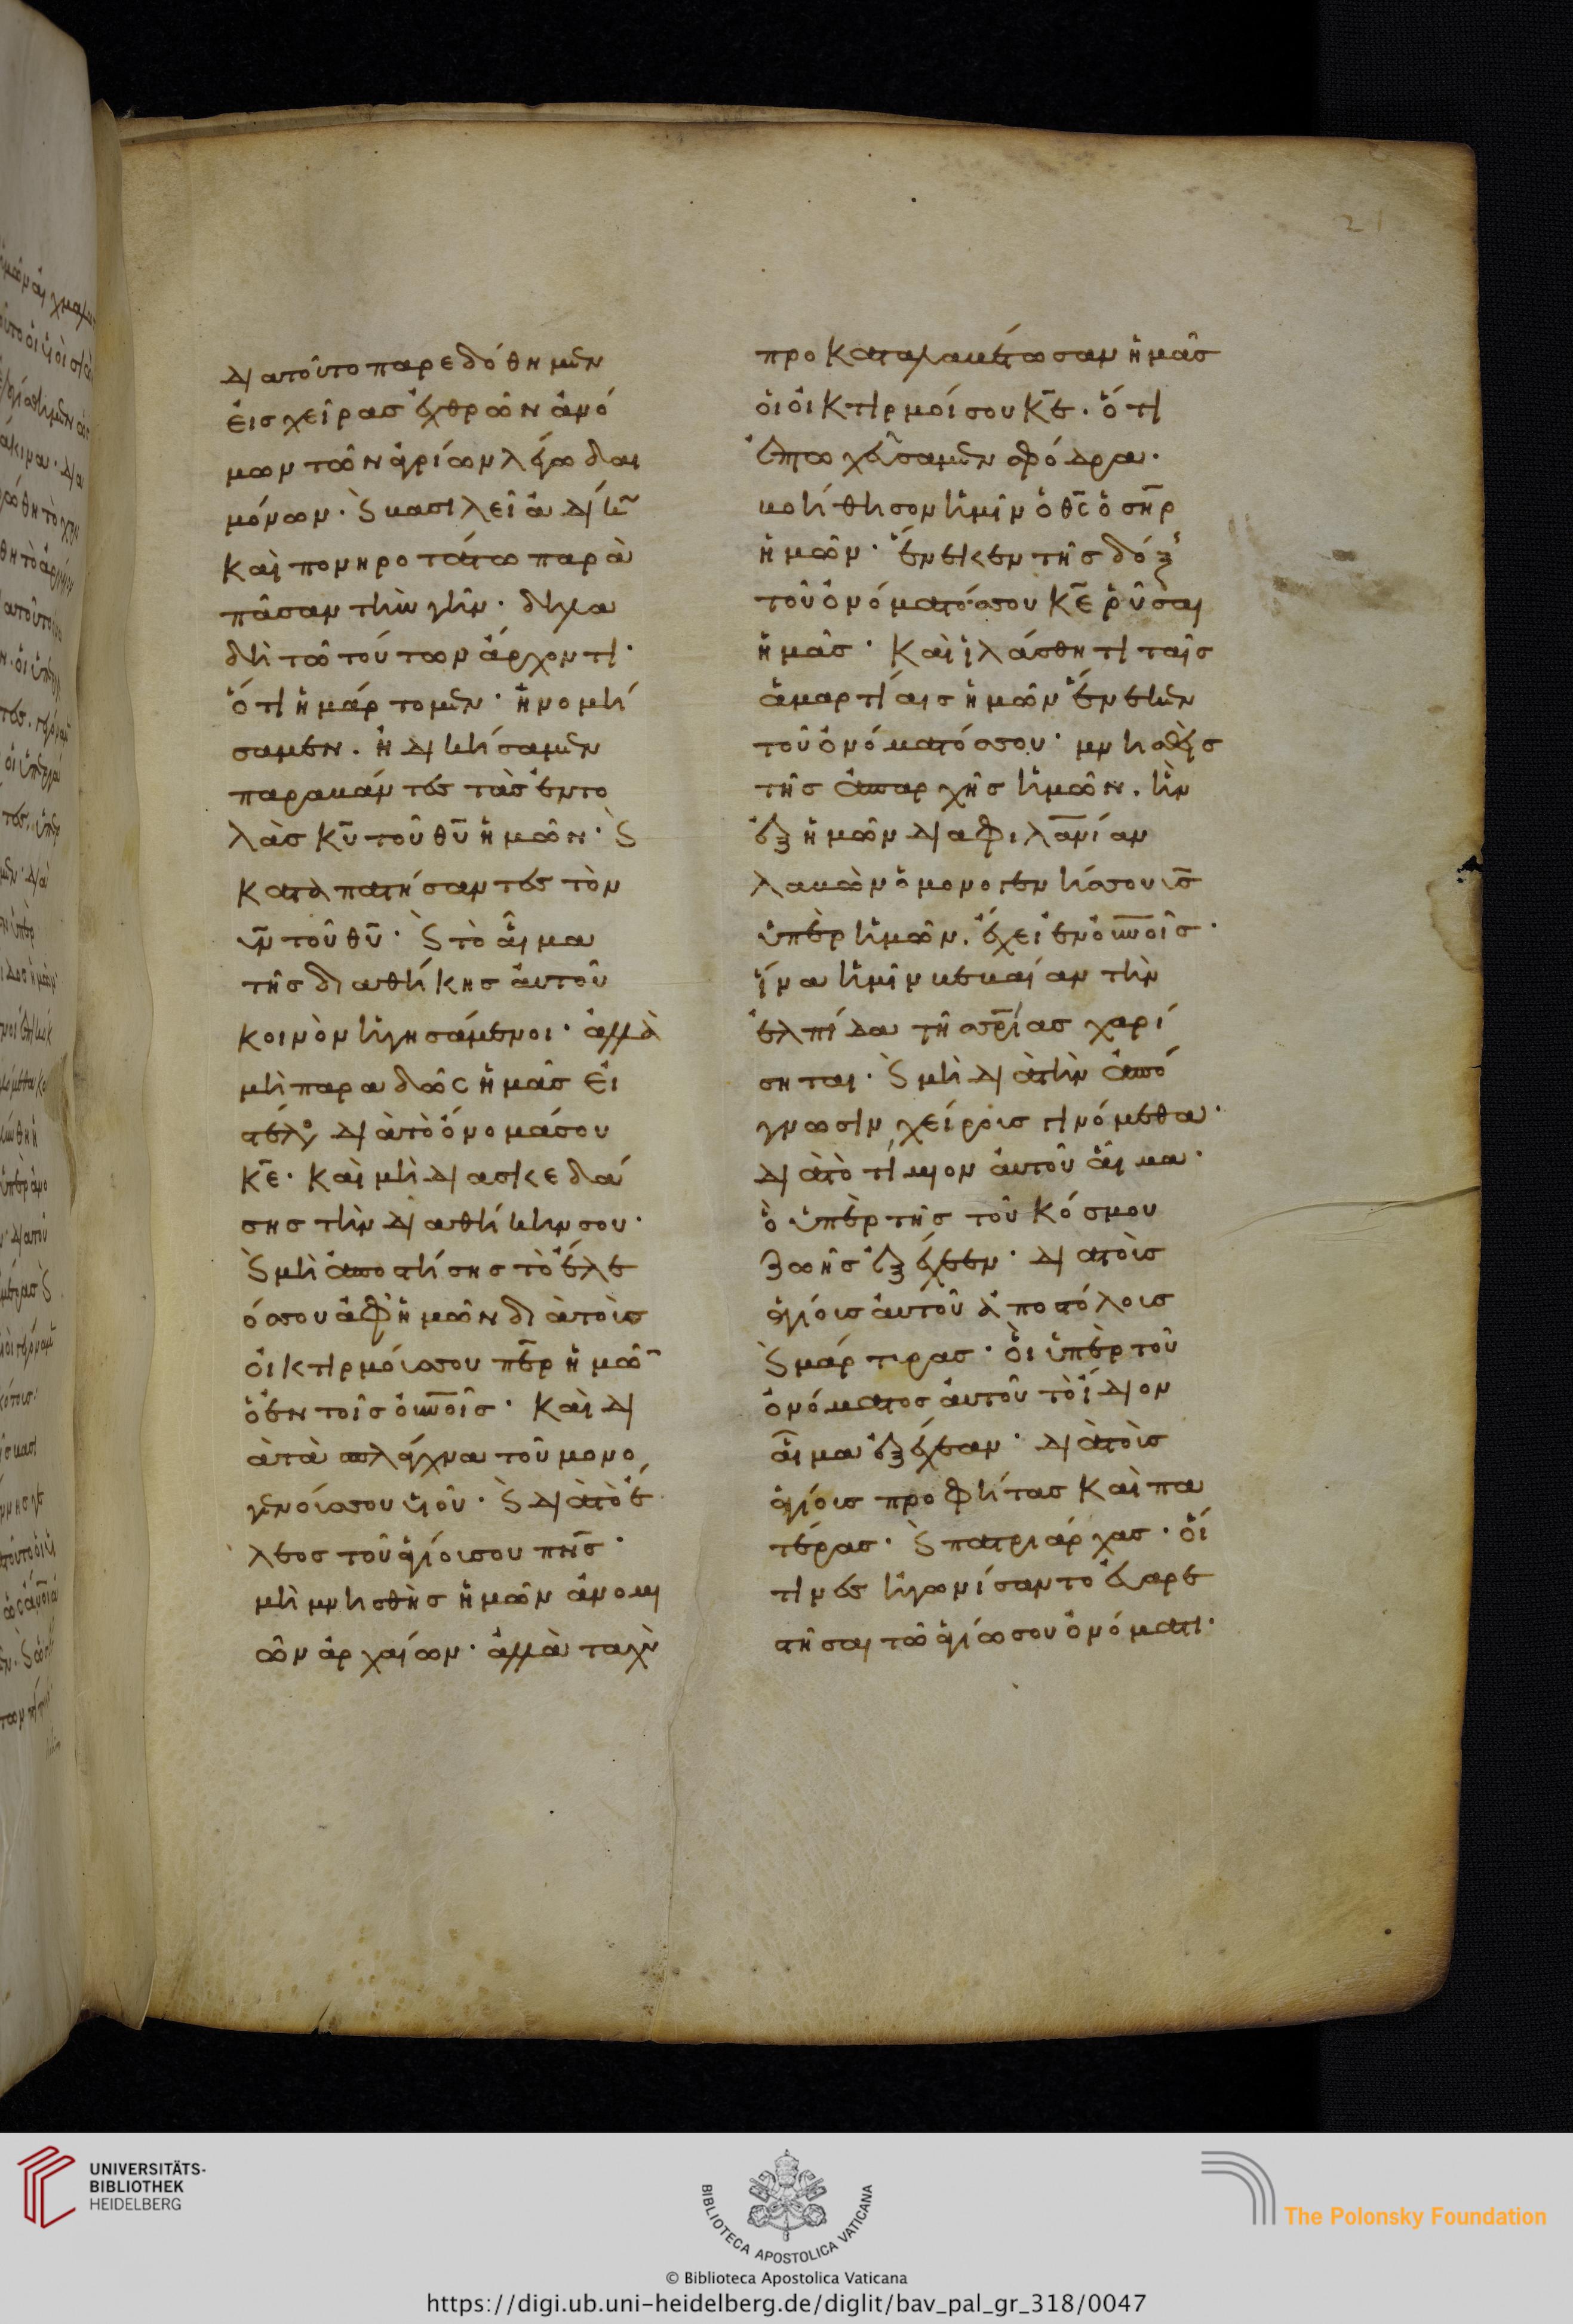 διατοῦτο παρεδόθημεν
εἰς χεῖρας ἐχθρῶν ἀνό
μων τῶν ἀγρίων λέγω δαι
μόνων· καὶ βασιλεῖ ἀδίκω
καὶ πονηροτάτω παρὰ
πᾶσαν τὴν γῆν· δηλα
δὴ τῶ τούτων ἄρχοντι·
ὅτι ἡμάρτομεν· ἠνομή
σαμεν. ἠδικήσαμεν
παραβάντες τὰς ἐντο
λὰς κ̅υ̅ τοῦ θ̅υ̅ ἡμῶν· καὶ
καταπατήσαντες τὸν
υ̅ν̅ τοῦ θ̅υ̅· καὶ τὸ αἷμα
τῆς διαθήκης αὐτοῦ
κοινὸν ἡγησάμενοι· ἀλλὰ
μὴ παραδῶς ἡμᾶς εἰ
ς τέλος διὰ τὸ ὄνομά σου
κ̅ε̅· καὶ μὴ διασκεδά
σης τὴν διαθήκην σου·
καὶ μὴ ἀποστήσης τὸ ἔλε
ός σου ἀφ ἡμῶν διὰ τοὺς
οἰκτιρμούς σου π̅ε̅ρ ἡμῶν
ὁ ἐν τοῖς ο̅υ̅ν̅οῖς· καὶ δι
ὰ τὰ σπλάγχνα τοῦ μονο
γενούς σου υἱοῦ· καὶ διὰ τὸ ἔ
λεος τοῦ ἁγίου σου π̅ν̅ς̅·
μὴ μνησθῆς ἡμῶν ἀνομι
ῶν ἀρχαίων· ἀλλὰ ταχὺ
προκαταλαβέτωσαν ἡμᾶς
οἱ οἰκτιρμοί σου κ̅ε̅. ὅτι
ἐπτωχεύσαμεν σφόδρα·
βοήθησον ἡμῖν ὁ θ̅ς̅ ὁ σ̅η̅ρ̅
ἡμῶν· ἕνεκεν τῆς δόξης
τοῦ ὀνόματός σου κ̅ε̅ ῥῦσαι
ἡμᾶς· καὶ ἱλάσθητι ταῖς
ἁμαρτίαις ἡμῶν ἕνεκεν
τοῦ ὀνόματός σου· μνησθεὶς
τῆς ἀπαρχῆς ἡμῶν. ἣν
ἐξ ἡμῶν διὰ φιλα̅ν̅ίαν
λαβὼν ὁ μονογενής σου υ̅ς̅
ὑπὲρ ἡμῶν. ἔχει ἐν ο̅υ̅ν̅οῖς·
ἵνα ἡμῖν βεβαίαν τὴν
ἐλπίδα τῆς σ̅ρ̅ίας χαρί
σηται· καὶ μὴ διὰ τὴν ἀπό
γνωσιν, χείρους γινόμεθα·
διὰ τὸ τίμιον αὐτοῦ αἷμα·
ὃ ὑπὲρ τῆς τοῦ κόσμου
ζωῆς ἐξέχεεν· διὰ τοὺς
ἁγίους αὐτοῦ ἀποστόλους
καὶ μάρτυρας· οἳ ὑπὲρ τοῦ
ὀνόματος αὐτοῦ τὸ ἴδιον
αἷμα ἐξέχεαν· διὰ τοὺς
ἁγίους προφήτας καὶ πα
τέρας· καὶ πατριάρχας· οἵ
τινες ἠγωνίσαντο εὐαρε
στῆσαι τῶ ἁγίω σου ὀνόματι·
21
UNIVERSITÄTS-
BIBLIOTHEK
HEIDELBERG
BIBLIOTECA APOSTOLICA VATICANA
© Biblioteca Apostolica Vaticana
The Polonsky Foundation
https://digi.ub.uni-heidelberg.de/diglit/bav_pal_gr_318/0047